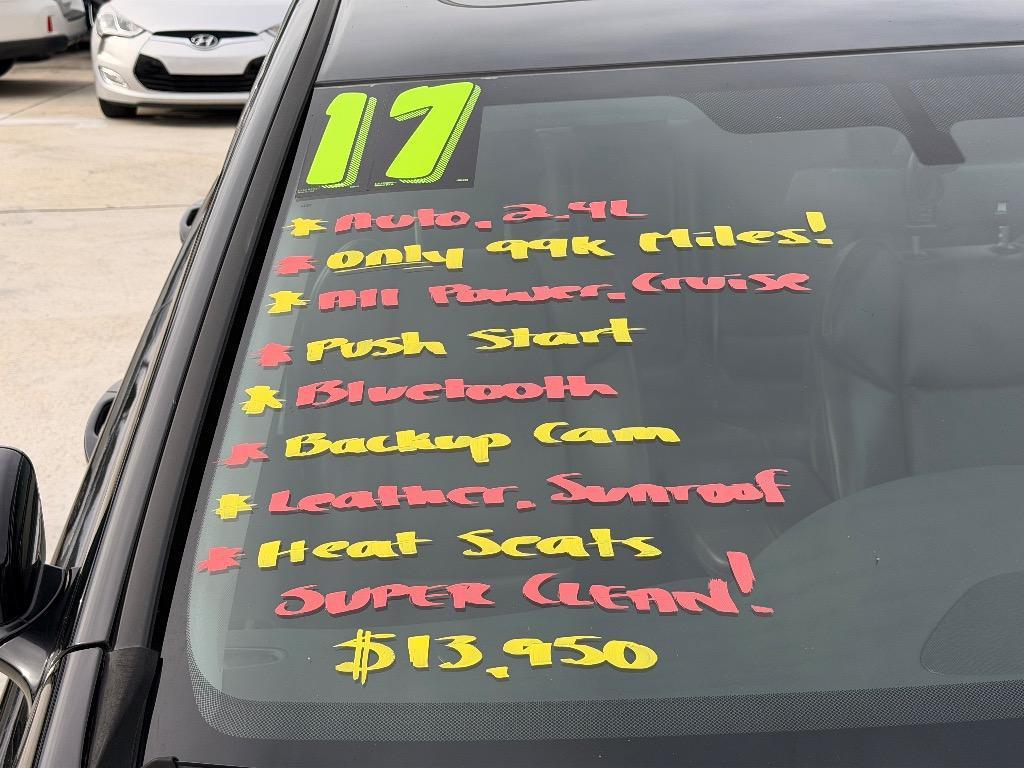 17
* Auto, 2.4L
* Only 99k Miles!
* All Power, Cruise
* Push Start
* Bluetooth
* Backup Cam
* Leather, Sunroof
* Heat Seats
SUPER CLEAN!
$13,950